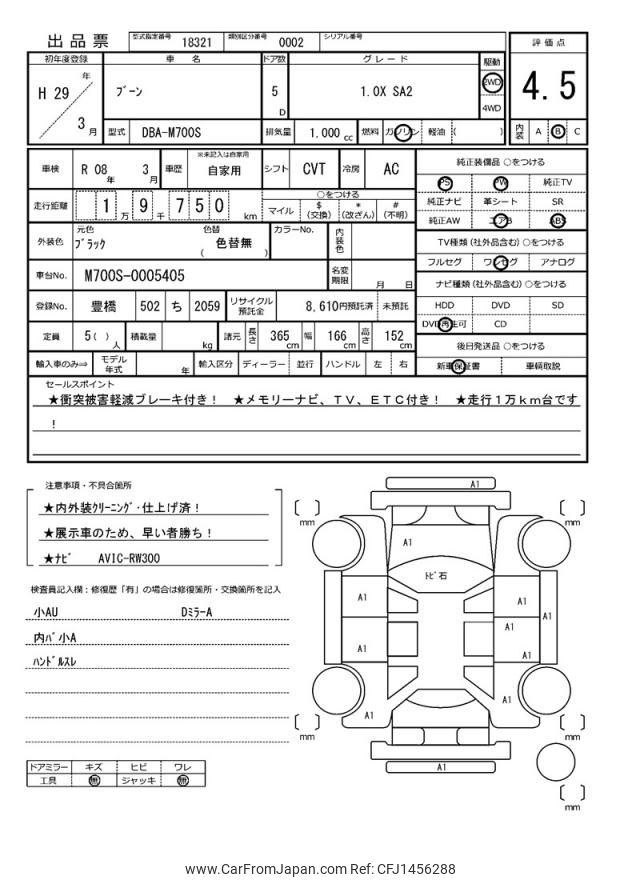 出品票 型式指定番号 18321 類別区分番号 0002 シリアル番号
初年度登録 車名 ドア数 グレード 駆動 評価点
H 29 年 3 月 ブーン 5 D 1.0X SA2 2WD 4WD 4.5
型式 DBA-M700S 排気量 1.000 cc 燃料 ガソリン 軽油 ( ) 内装 A B C
車検 R 08 年 3 月 車歴 ※未記入は自家用 自家用 シフト CVT 冷房 AC
純正装備品 ○をつける
PS PW 純正TV
走行距離 1 万 9 千 7 5 0 km ○をつける
マイル $ (交換) * (改ざん) # (不明)
純正ナビ 革シート SR
純正AW エアB ABS
外装色 元色 ブラック 色替 ( 色替無 ) カラーNo. 内装色
TV種類 (社外品含む) ○をつける
フルセグ ワンセグ アナログ
車台No. M700S-0005405 名変期限 月 日
ナビ種類 (社外品含む) ○をつける
登録No. 豊橋 502 ち 2059 リサイクル預託金 8,610円預託済 未預託
HDD DVD SD
DVD再生可 CD
定員 5 ( ) 人 積載量 kg 諸元 長さ 365 cm 幅 166 cm 高さ 152 cm
後日発送品 ○をつける
輸入車のみ⇒ モデル年式 年 輸入区分 ディーラー 並行 ハンドル 左 右
新車保証書 車輌取説
セールスポイント
★衝突被害軽減ブレーキ付き! ★メモリーナビ、TV、ETC付き! ★走行1万km台です
!
注意事項・不具合箇所
★内外装クリーニング・仕上げ済!
★展示車のため、早い者勝ち!
★ナビ AVIC-RW300
検査員記入欄:修復歴「有」の場合は修復箇所・交換箇所を記入
小AU Dミラーア
内バ小A
ハンドルスレ
ドアミラー キズ ヒビ ワレ
工具 無 ジャッキ 無
A1
mm mm
A1
トビ石
A1 A1
A1
A1 A1
A1
A1 A1
mm mm
A1
mm
www.CarFromJapan.com Ref: CFJ1456288